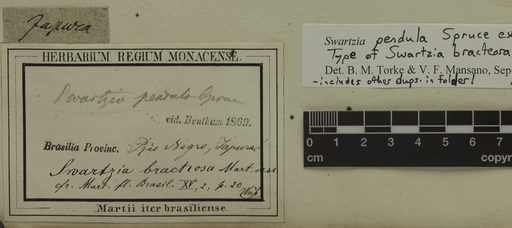 Japura
HERBARIUM REGIUM MONACENSE.
Swartzia pendula Spruce
vid. Bentham 1869.
Brasilia Provinc. Rio Negro, Japura
Swartzia bracteosa Mart.
cfr. Mart. fl. Brasil. XV, 2, p. 20
Martii iter brasiliense.
Swartzia pendula Spruce ex
Type of Swartzia bracteosa
Det. B. M. Torke & V. F. Mansano, Sep
-includes other dups. in folder!
0 1 2 3 4
cm copyr